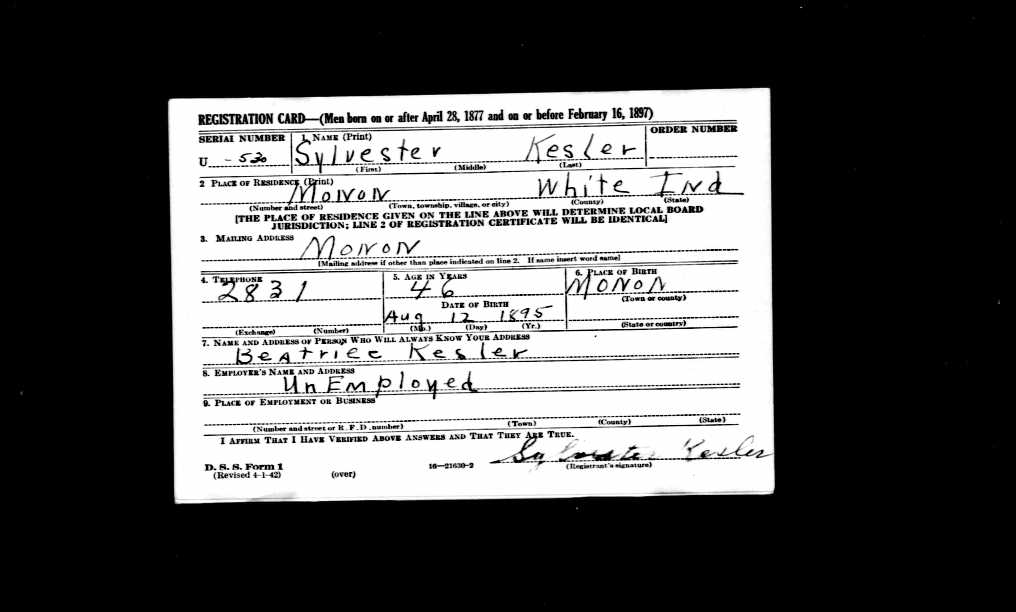 REGISTRATION CARD—(Men born on or after April 28, 1877 and on or before February 16, 1897)
SERIAL NUMBER 1. NAME (Print) ORDER NUMBER
U -530 Sylvester Kesler
(First) (Middle) (Last)
2 PLACE OF RESIDENCE (Print)
Monon White Ind
(Number and street) (Town, township, village, or city) (County) (State)
[THE PLACE OF RESIDENCE GIVEN ON THE LINE ABOVE WILL DETERMINE LOCAL BOARD
JURISDICTION; LINE 2 OF REGISTRATION CERTIFICATE WILL BE IDENTICAL]
3. MAILING ADDRESS
Monon
[Mailing address if other than place indicated on line 2. If same insert word same]
4. TELEPHONE 5. AGE IN YEARS 6. PLACE OF BIRTH
2831 46 Monon
(Town or county)
DATE OF BIRTH
Aug 12 1895
(Exchange) (Number) (Mo.) (Day) (Yr.) (State or country)
7. NAME AND ADDRESS OF PERSON WHO WILL ALWAYS KNOW YOUR ADDRESS
Beatriec Kesler
8. EMPLOYER'S NAME AND ADDRESS
UnEmployed
9. PLACE OF EMPLOYMENT OR BUSINESS
(Number and street or R. F. D. number) (Town) (County) (State)
I AFFIRM THAT I HAVE VERIFIED ABOVE ANSWERS AND THAT THEY ARE TRUE.
Sylvester Kesler
D. S. S. Form 1 16—21630-2 (Registrant's signature)
(Revised 4-1-42) (over)